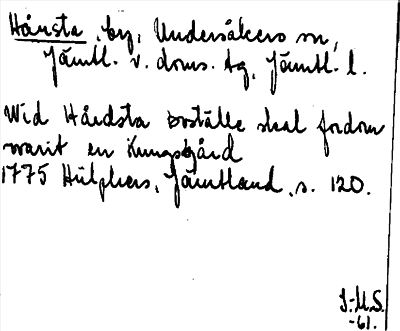 Hårsta, by, Undersåkers sn,
Jämtl. v. doms. tg, Jämtl. l.
Wid Hårdsta Boställe skal fordom
warit en Kungsgård
1775 Hülphers, Jämtland, s. 120.
I-M.S.
-61.